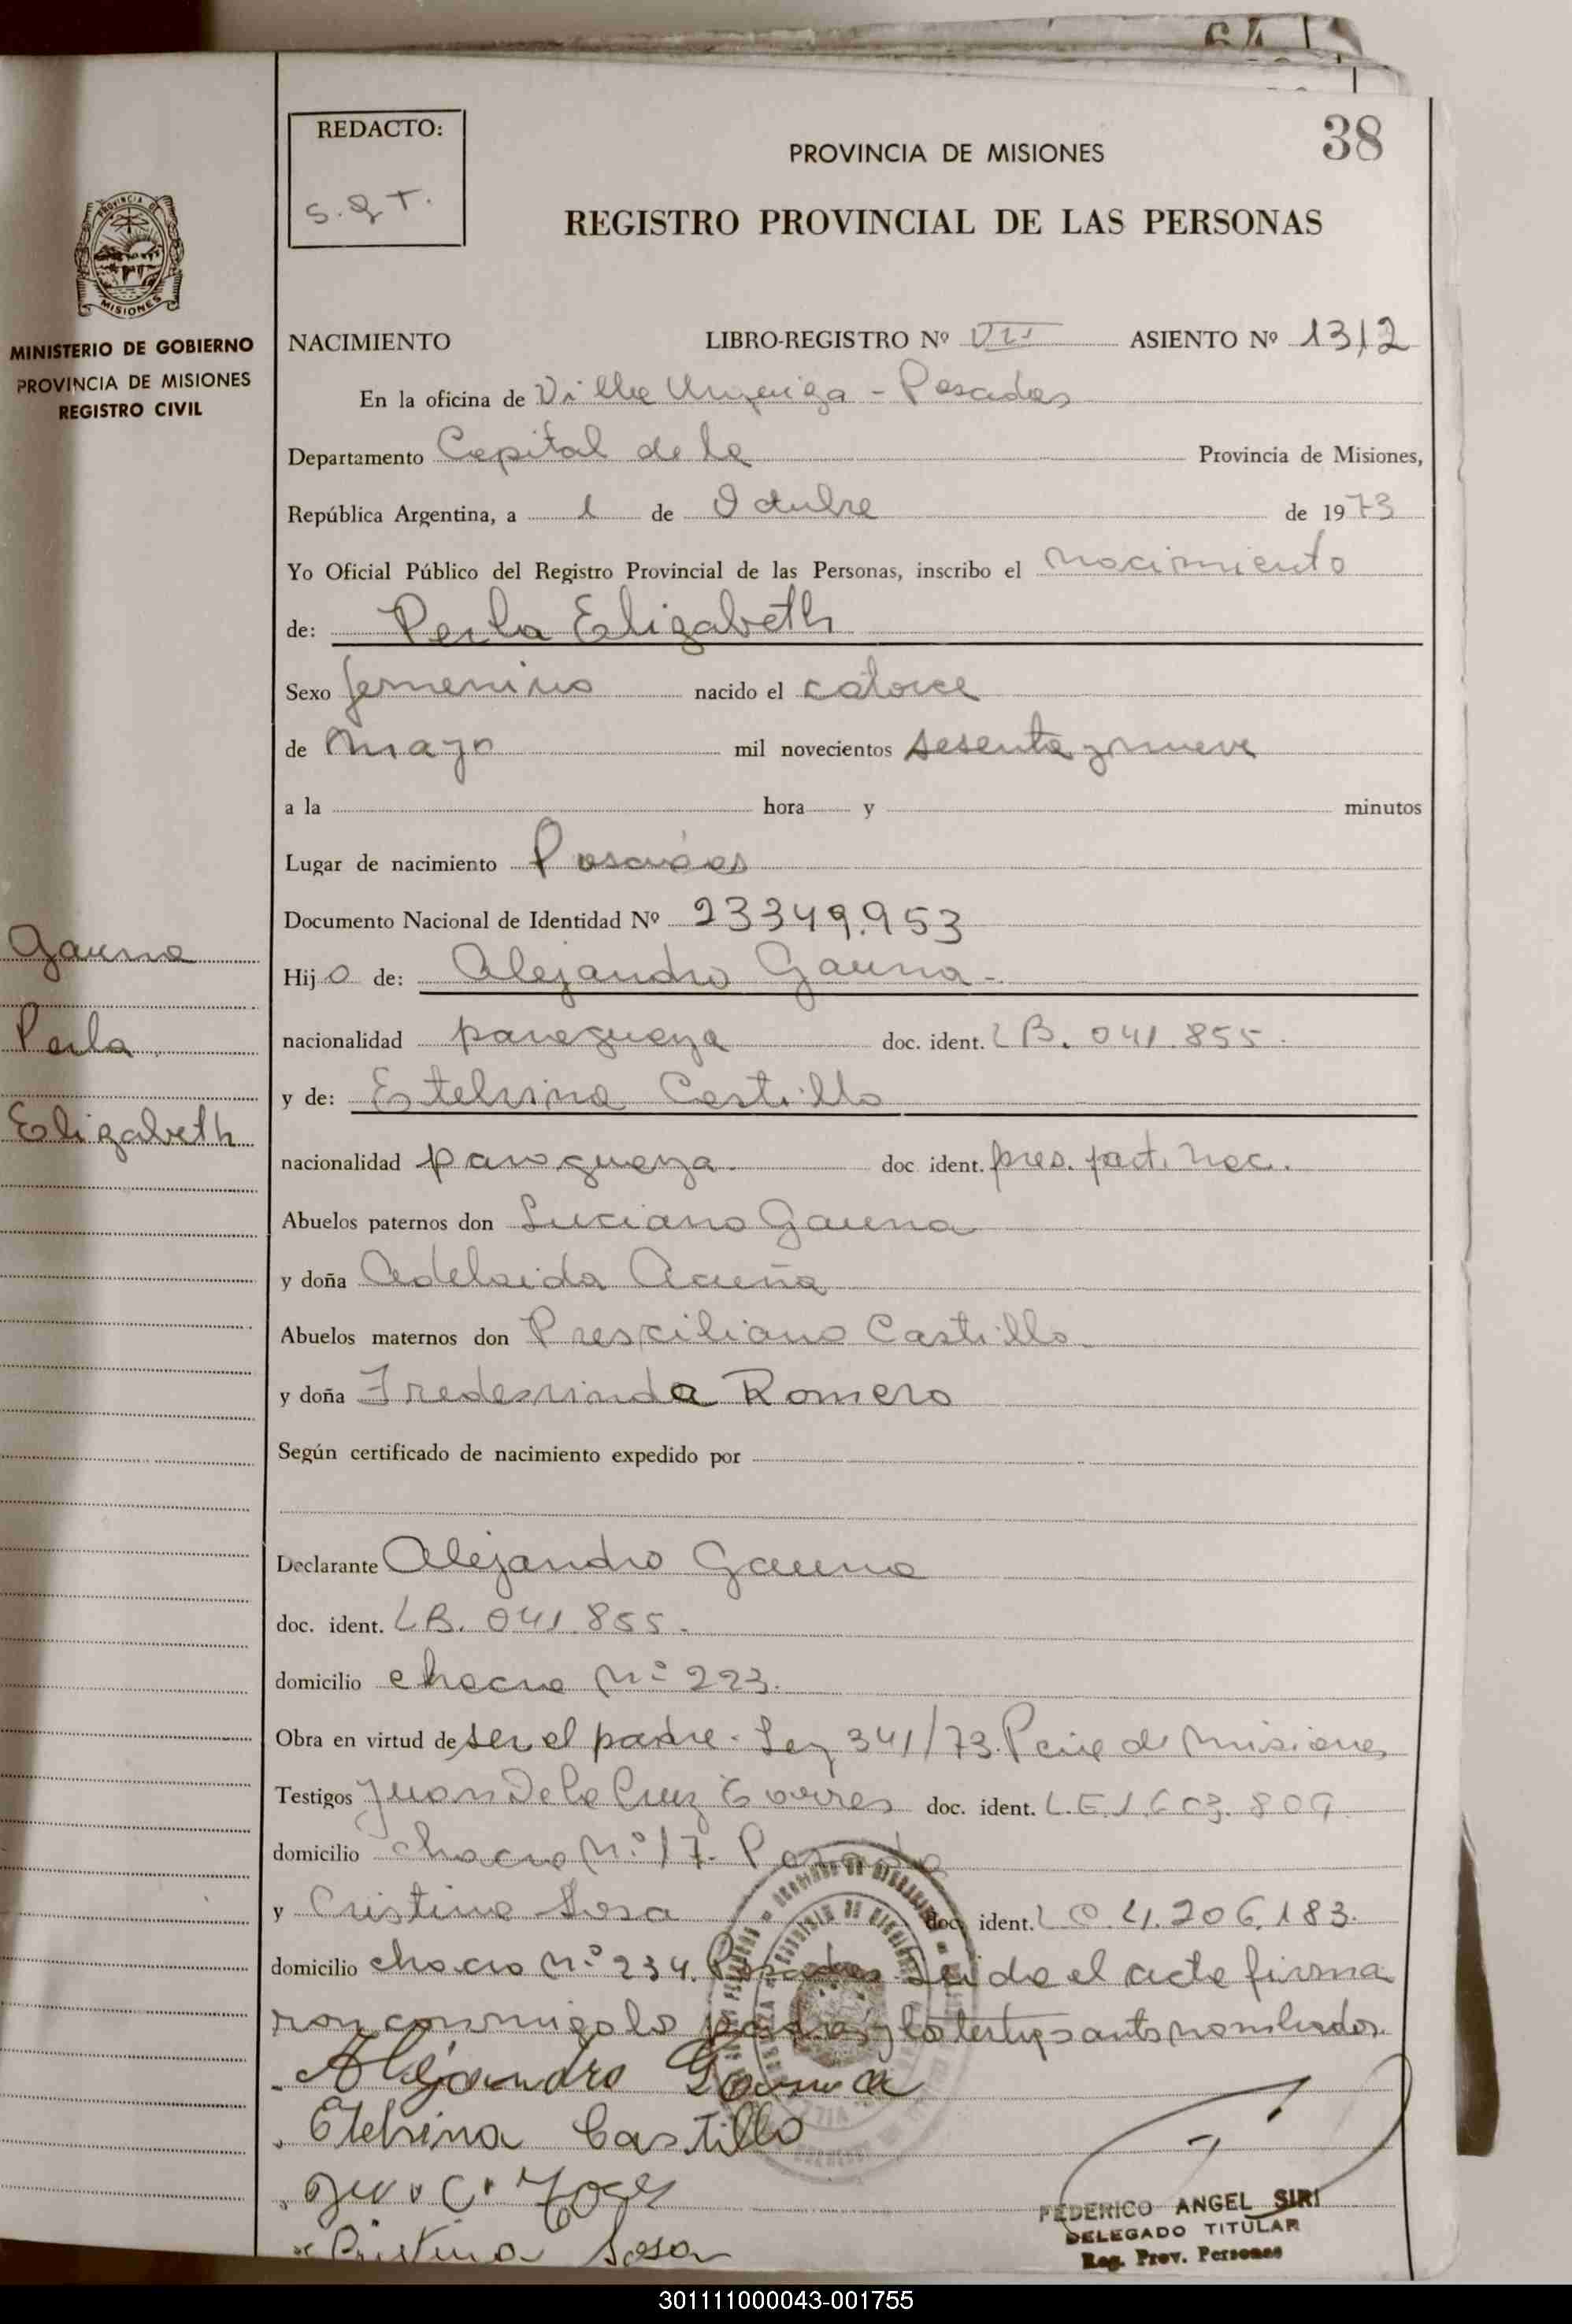 64
38
REDACTO:
S. G T.
PROVINCIA DE MISIONES
REGISTRO PROVINCIAL DE LAS PERSONAS
PROVINCIA DE
MISIONES
MINISTERIO DE GOBIERNO
PROVINCIA DE MISIONES
REGISTRO CIVIL
NACIMIENTO LIBRO-REGISTRO Nº VII ASIENTO Nº 1312
En la oficina de Villa Urquiza - Posadas
Departamento Capital de la Provincia de Misiones,
República Argentina, a 1 de Octubre de 1973
Yo Oficial Público del Registro Provincial de las Personas, inscribo el nacimiento
de: Perla Elizabeth
Sexo femenino nacido el catorce
de mayo mil novecientos sesenta y nueve
a la hora y minutos
Lugar de nacimiento Posadas
Documento Nacional de Identidad Nº 23349.953
Gauna
Perla
Elizabeth
Hija de: Alejandro Gauna-
nacionalidad paraguaya doc. ident. LB. 041.855.
y de: Etelvina Castillo
nacionalidad paraguaya. doc ident. pres. part. nac.
Abuelos paternos don Luciano Gauna
y doña Adelaida Acuña
Abuelos maternos don Presciliano Castillo
y doña Fredesvinda Romero
Según certificado de nacimiento expedido por
Declarante Alejandro Gauna
doc. ident. LB. 041.855.
domicilio chacra Nº 223.
Obra en virtud de ser el padre. Ley 341/73. Pcia de Misiones
Testigos Juan De la Cruz Torres doc. ident. L.E.1.603.809
domicilio chacra Nº 17. Posadas
y Cristina Sosa doc. ident. LC.4.206.183.
domicilio chacra Nº 234. Posadas. Leida el acta firma
ron conmigo lo padres y los testigos antes nombrados.
Alejandro Gauna
Etelvina Castillo
Cristina Sosa
FEDERICO ANGEL SIRI
DELEGADO TITULAR
Reg. Prov. Personas
301111000043-001755